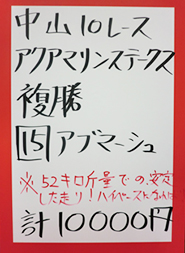 中山10レース
アクアマリンステークス
複勝
15 アブマーシュ
※52キロ斤量での、安定
した走り!ハイペースになれば
計10000円